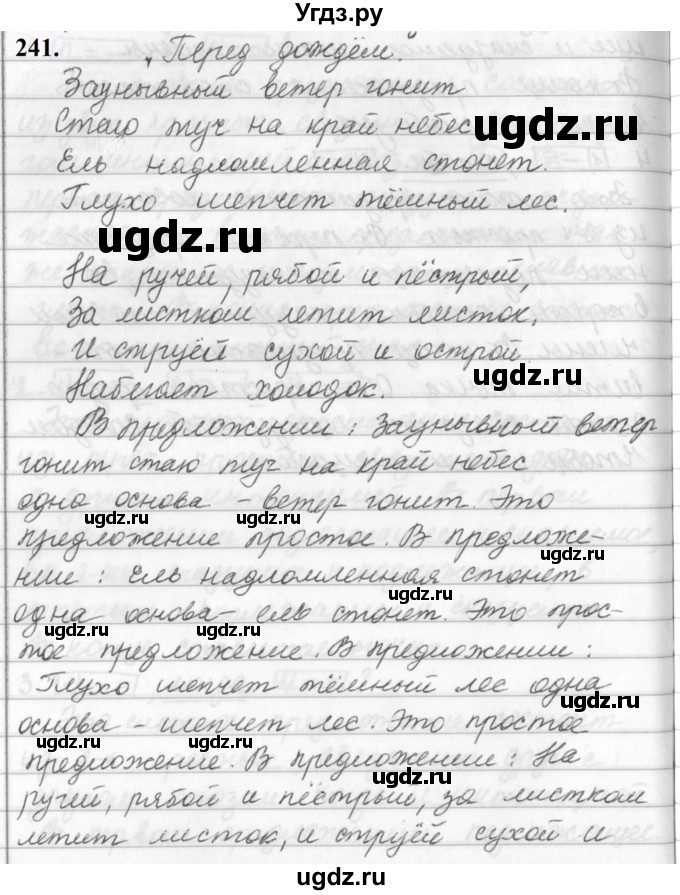 Угдз.ру
241. „Перед дождём."
Заунывный ветер гонит
Стаю туч на край небес
ugdz.ru
Ель надломленная стонет.
Глухо шепчет тёмный лес.
ugdz.ru
На ручей, рябой и пёстрый,
За листком летит листок,
И струёй сухой и острой
ugdz.ru
Набегает холодок.
В предложении: Заунывный ветер
гонит стаю туч на край небес
одна основа – ветер гонит. Это
ugdz.ru ugdz.ru
предложение простое. В предложе-
ugdz.ru
нии: Ель надломленная стонет
ugdz.ru
одна основа – ель стонет. Это прос-
ugdz.ru ugdz.ru
тое предложение. В предложении:
Глухо шепчет тёмный лес одна
ugdz.ru ugdz.ru
основа – шепчет лес. Это простое
предложение. В предложении: На
ugdz.ru ugdz.ru
ручей, рябой и пёстрый, за листком
летит листок, и струёй сухой и
ugdz.ru